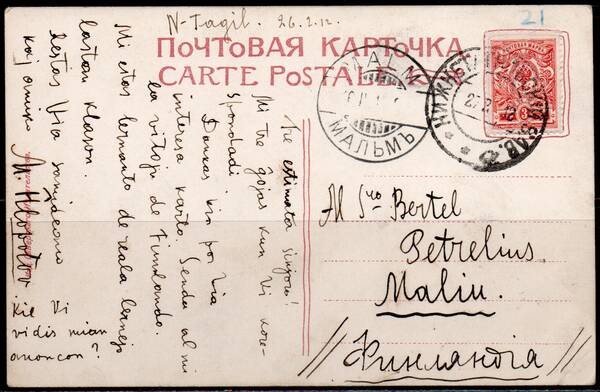 N-Tagil. 26.2.12.
21
ПОЧТОВАЯ КАРТОЧКА
CARTE POSTALE
МАЛЬМЪ
3
Tre estimata sinjoro!
Mi tre gojas kun Vi kore-
spondadi.
Dankas por Via
interesa karto. Sendu al mi
la de Finnlando.
Mi estas lernanto de reala lernejo
lastan klason.
Restas Via samideano
kaj amiko
M. Hlopotov
Kie Vi
vidis mian
anoncon?
M S-ro Bertel
Petrelius
Malm.
// Финляндія //